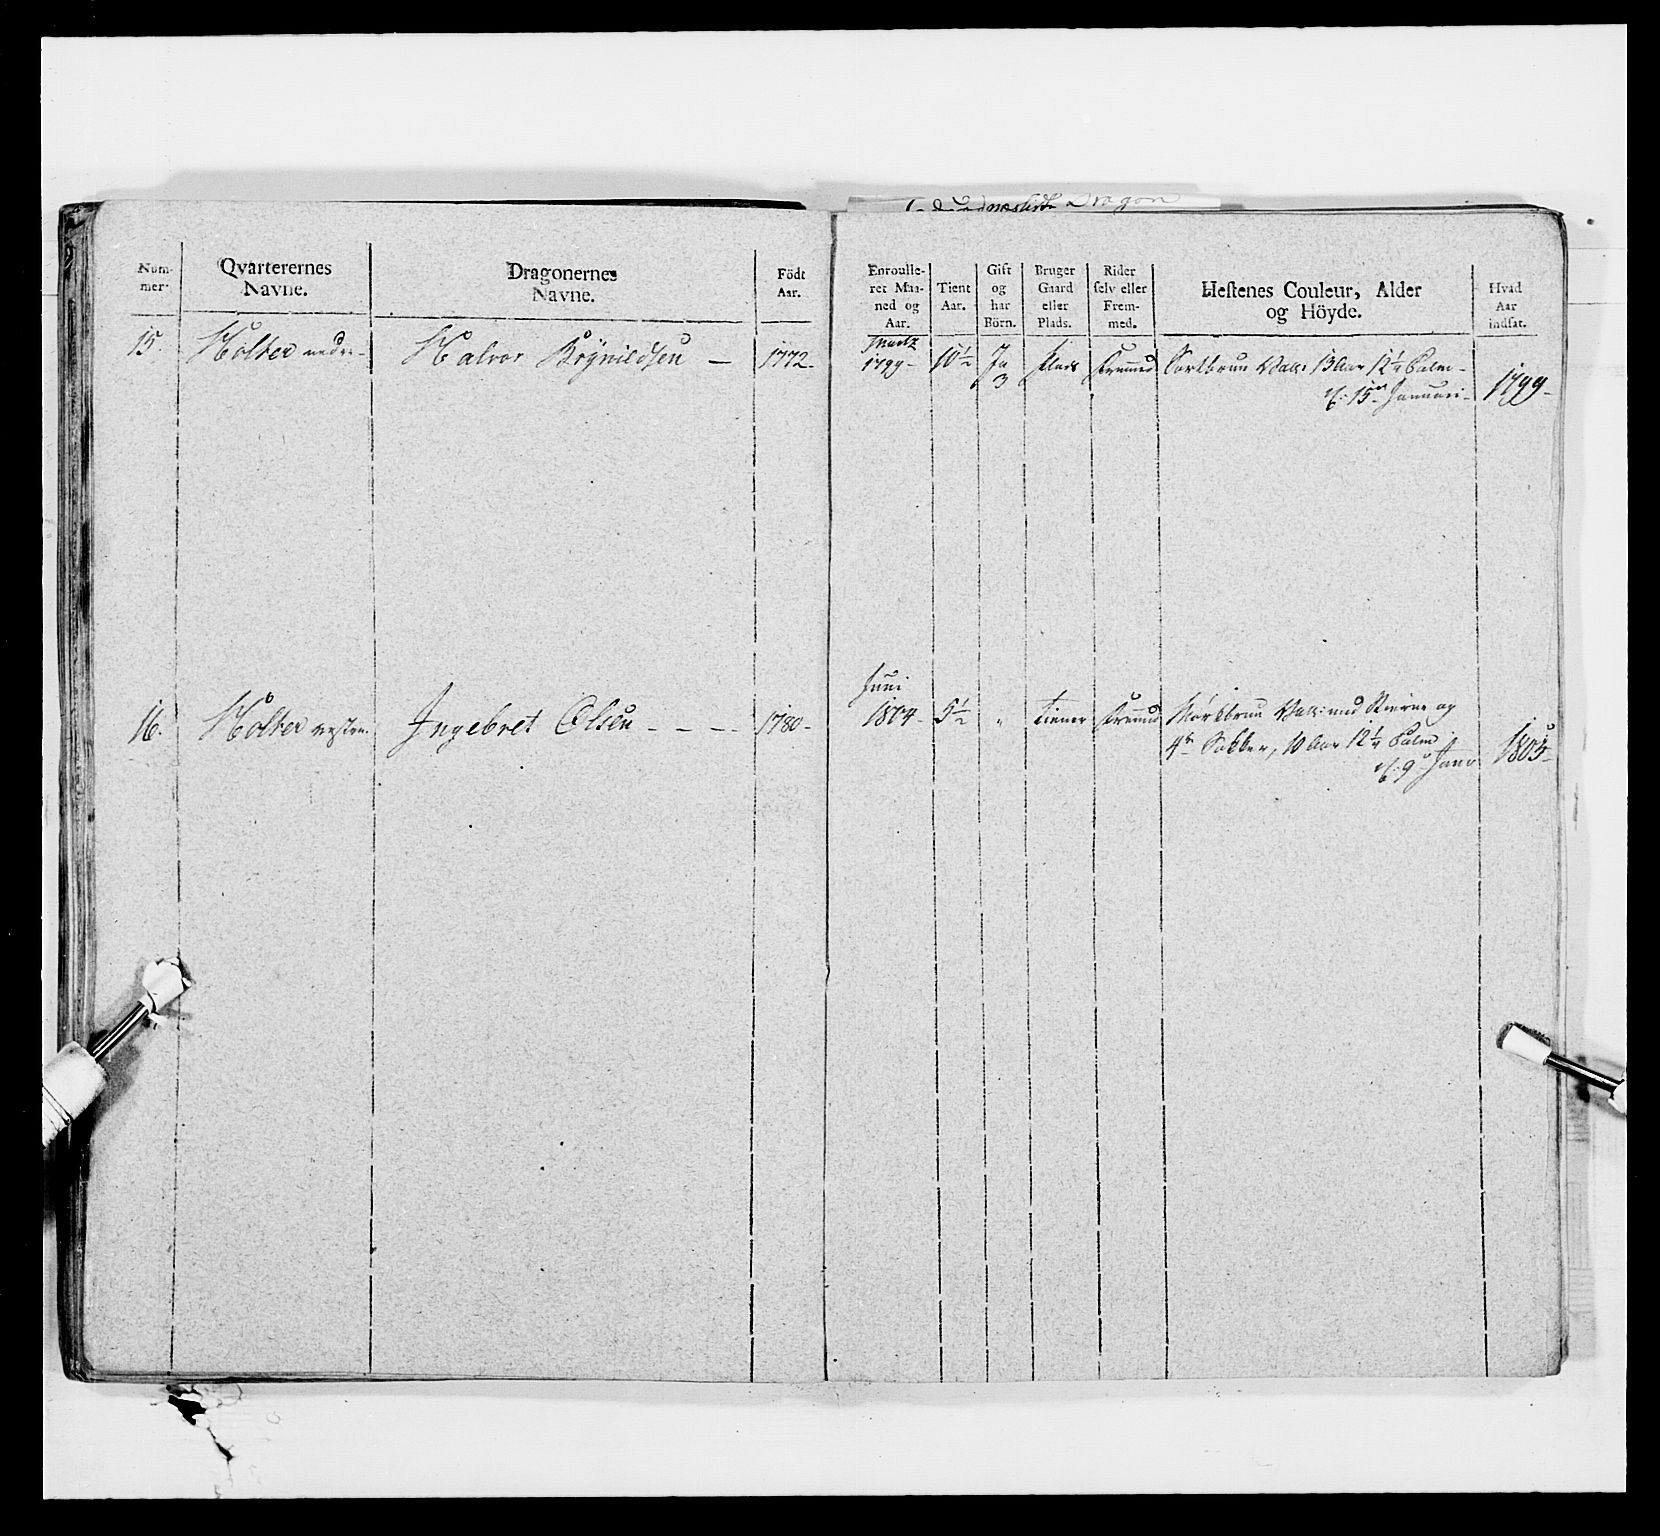 Dragon
Num-
mer.
Qvarterernes
Navne.
Dragonernes
Navne.
Födt
Aar.
Enroulle-
ret Maa-
ned og
Aar.
Tient
Aar.
Gift
og
har
Börn.
Bruger
Gaard
eller
Plads.
Rider
selv eller
Frem-
med.
Hestenes Couleur, Alder
og Höyde.
Hvad
Aar
indsat.
15. Holter nedre - Halvor Brynildsen - 1772.
Martz
1799 - 10½ Ja Plads Fremmed Sortbrun Vall: 13 Aar 12¼ Palm -
3 15de Januari - 1799 -
16. Holter vestre. Ingebret Olsen - - - - 1780 -
Juni
1804 - 5½ " tiener Fremmed Mörkbrun Vall: med Stierne og
4re Sokker, 10 Aar 12¼ Palm
9 Janu 1805 -